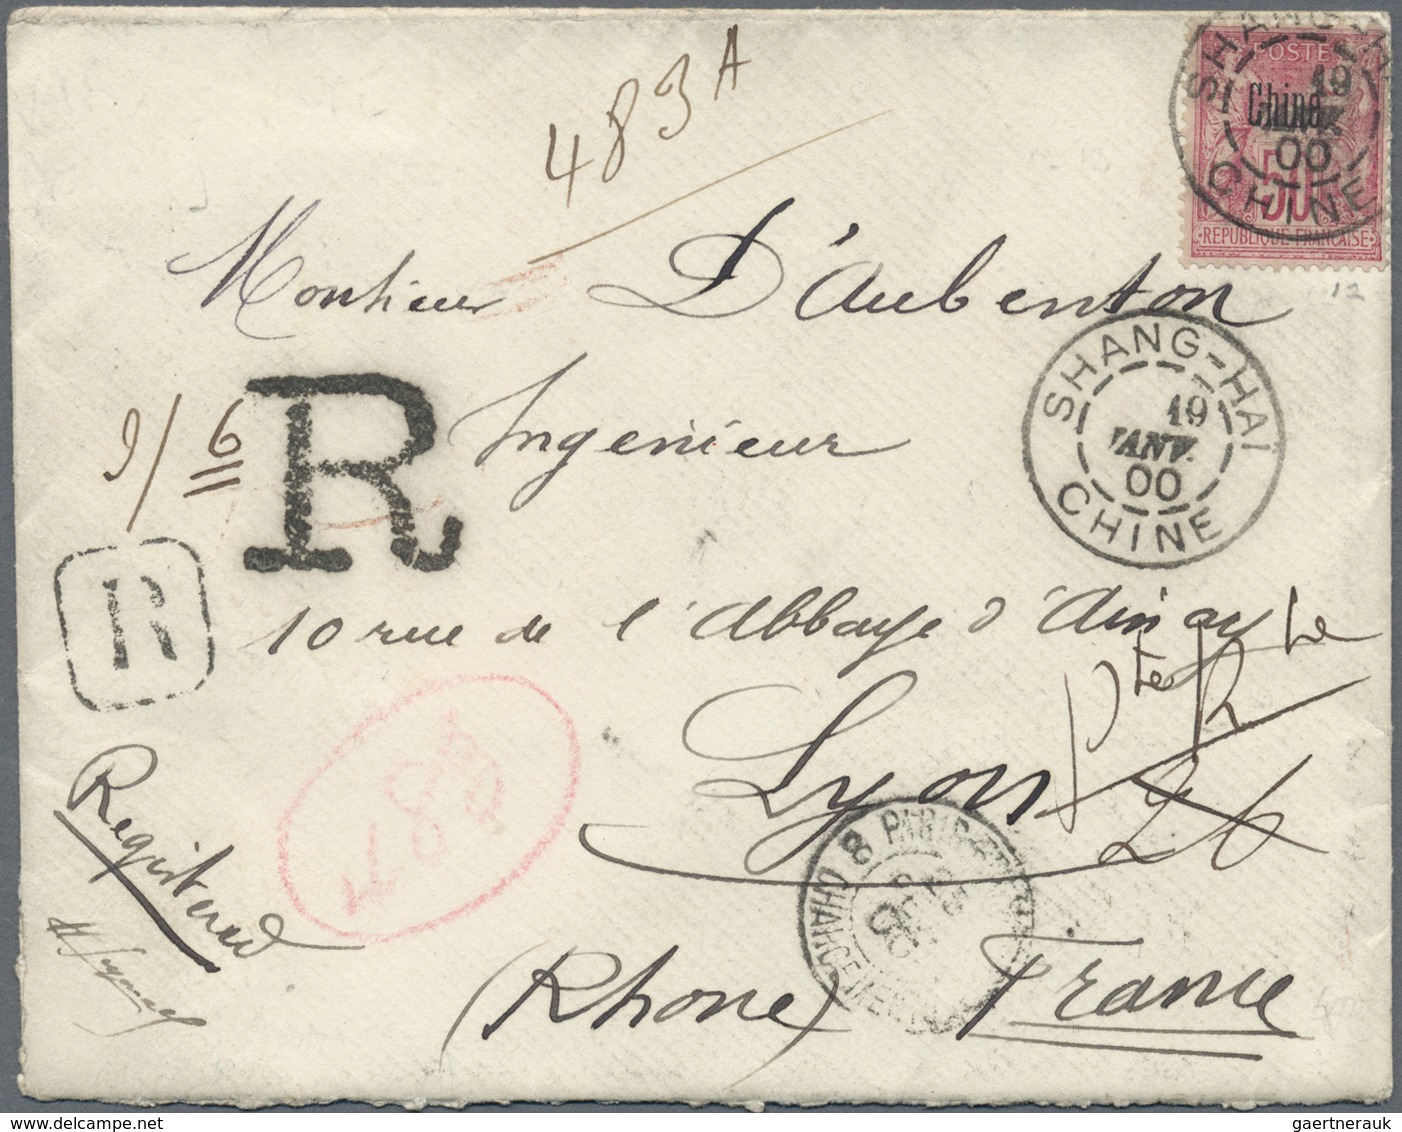 483 A
SHANG-HAI
POSTE
19
Chine
JANV.
00
50
CHINE
REPUBLIQUE FRANÇAISE
12
Monsieur D'Aubenton
SHANG-HAI
19
JANV.
00
CHINE
9/6
R
Ingenieur
R
10 rue de l'Abbaye d'Ainay
Lyon
26
483
Registered
8 PARIS
(Rhone) France
gaertnerauk